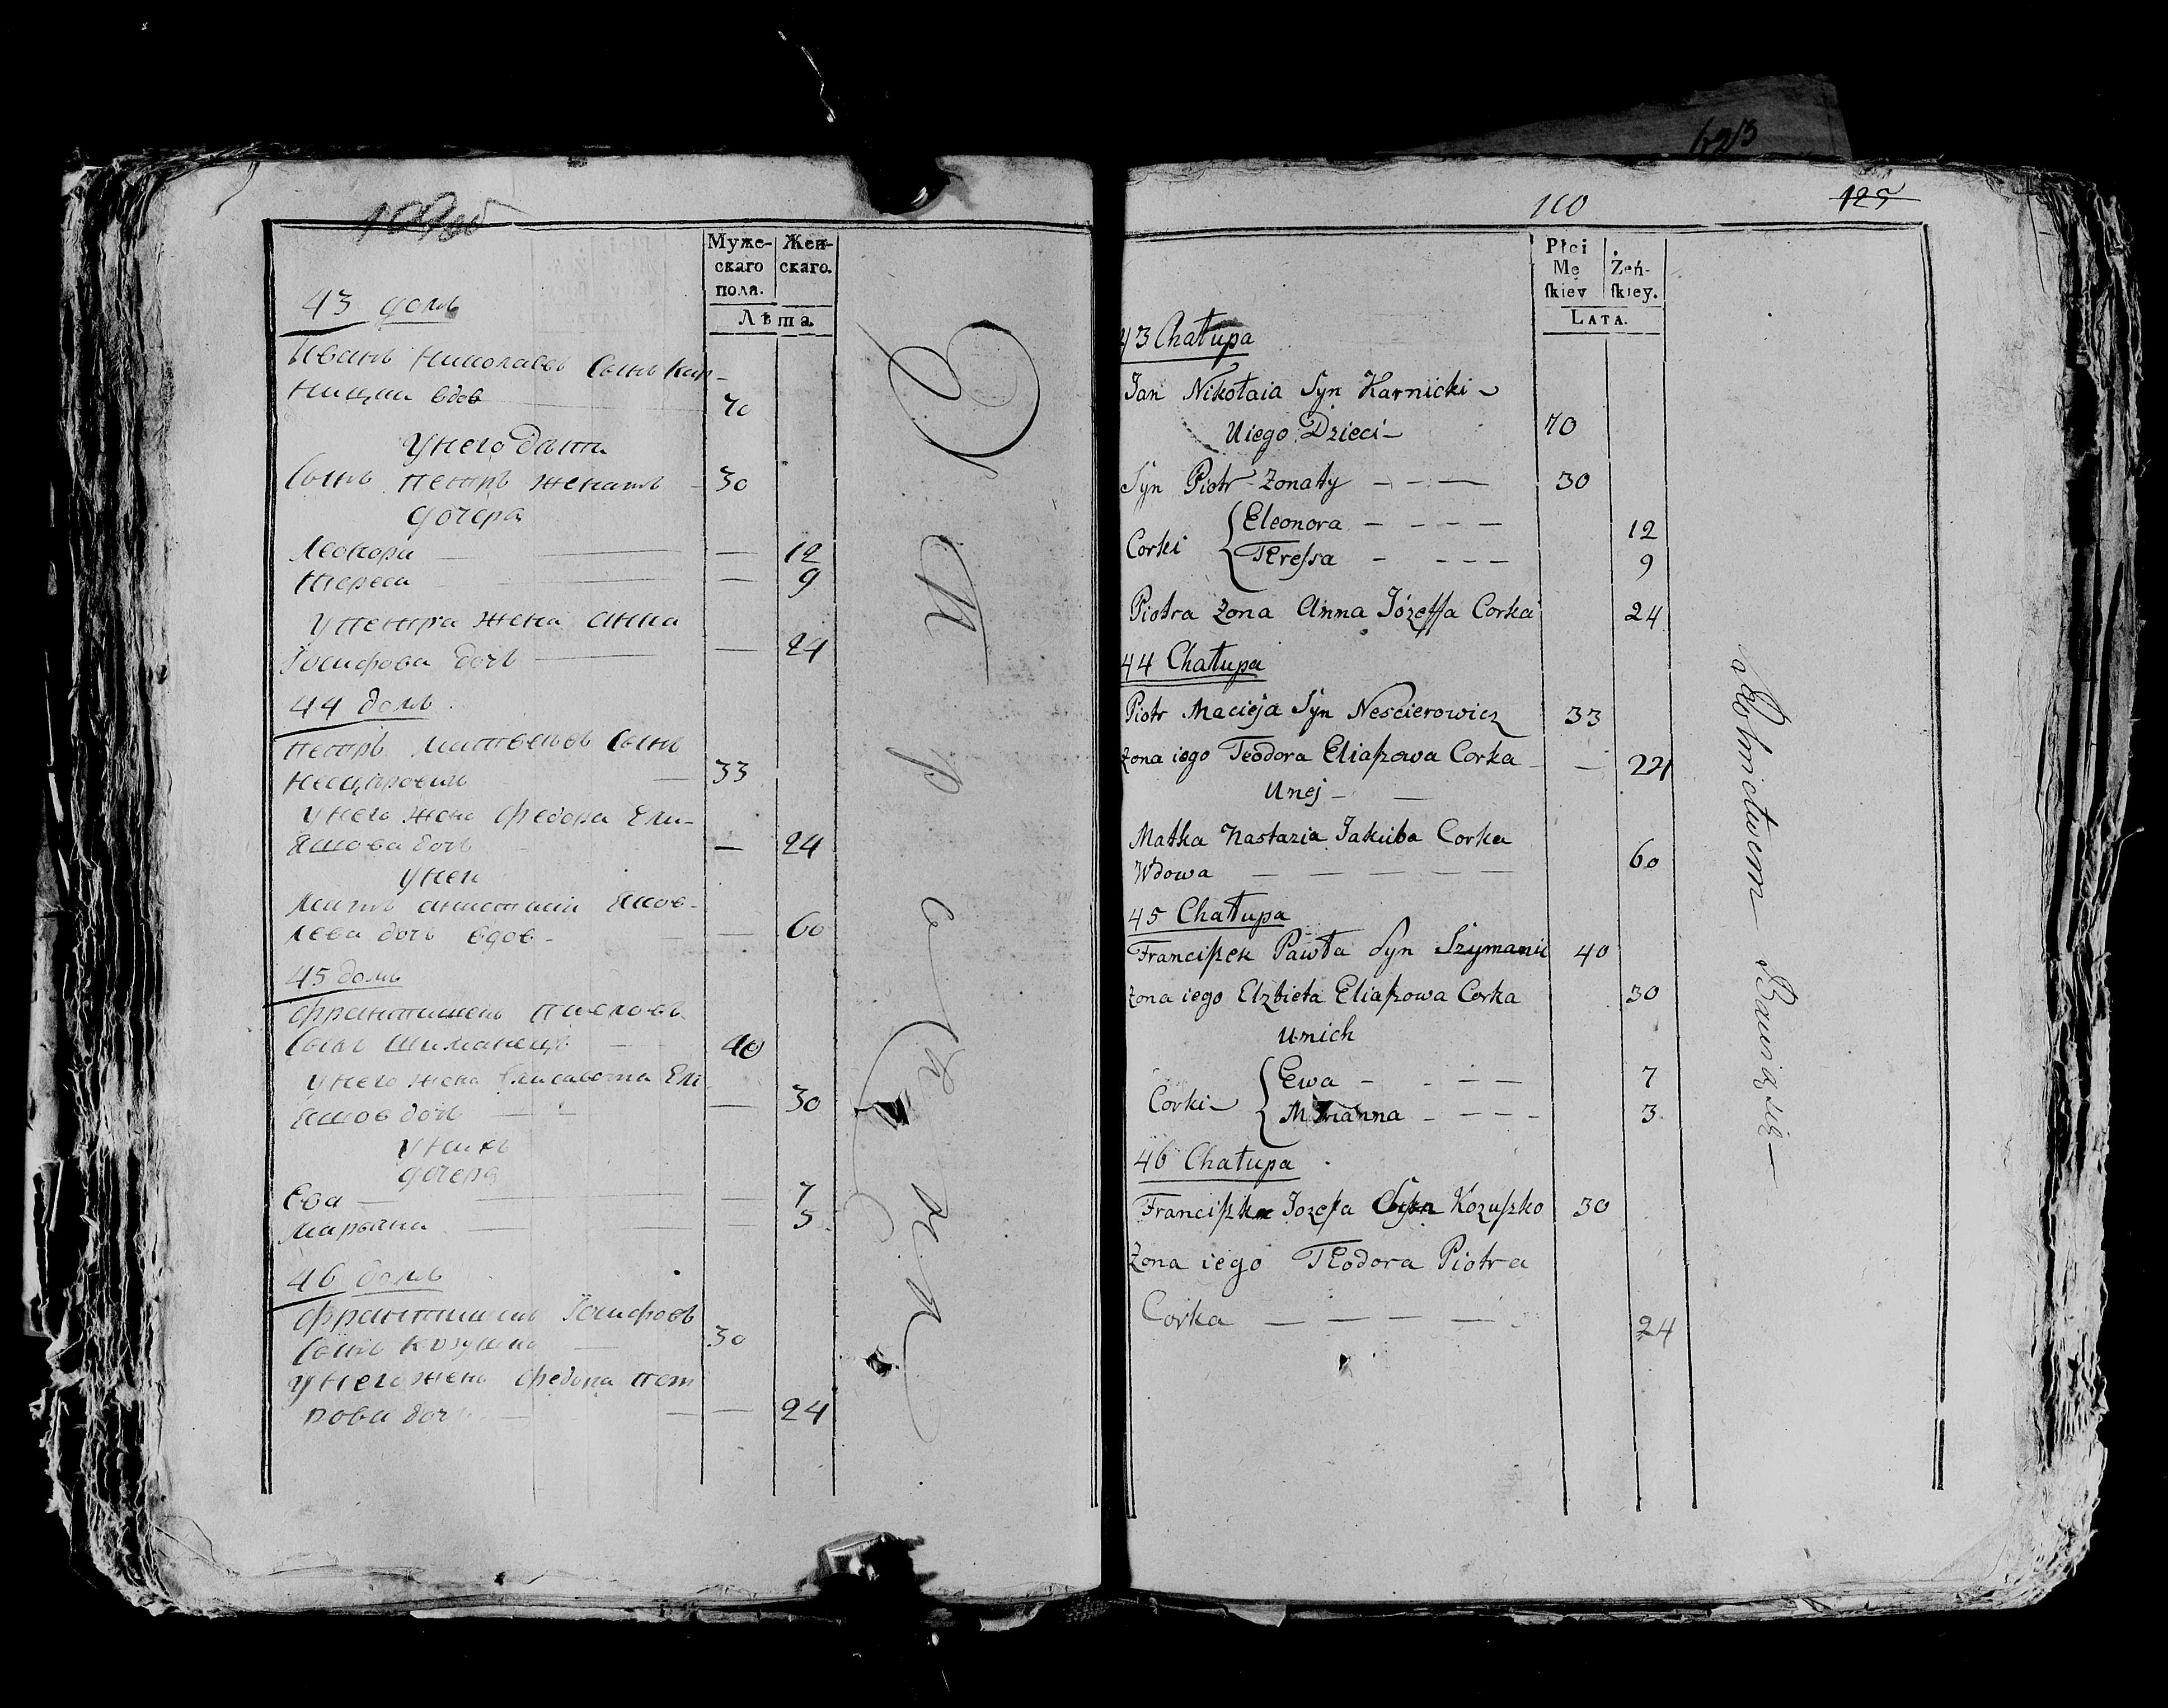 43 домъ
Муже-
скаго
пола.
Жен-
скаго.
Лѣта
Иванъ Николаевъ Сынъ Кар-
ницки вдов 70
У него дѣти
Сынъ Петръ женатъ - 30
дочера
Леонора — 12
тереса — 9
У петра жена анна
Іосифова дочь — 24
44 домъ
петръ матвеевъ Сынъ
— 33
У него жена федора Ели-
яшова дочь — 24
У неи
Яков-
лева дочь вдов - — 60
45 домъ
францишекъ павловъ
Сынъ — 40
У него жена Елисавета Ели
яшов дочь — 30
У нихъ
дочера
Ева — 7
Марьяна — 3
46 домъ
францишекъ Іосифовъ
Сынъ Козушко — 30
У него жена федора пет
рова дочь — 24
100
125
Płci
Mę
skiey
Żeń-
skiey.
LATA.
43 Chałupa
Jan Nikołaia Syn Karnicki -
Uiego Dzieci - 70
Syn Piotr Zonaty — — — 30
Corki { Eleonora — — — — 12
Teressa — — — — 9
Piotra Zona Anna Józeffa Corka 24
44 Chałupa
Piotr Macieja Syn Nescierowicz 33
Zona iego Teodora Eliaszowa Corka — 24
Unej — —
Matka Nastazia Jakuba Corka
Wdowa — — — — — 60
45 Chałupa
Franciszek Pawła Syn Szymanic 40
Zona iego Elzbieta Eliaszowa Corka 30
Unich
Corki - { Ewa — — — — 7
Marianna — — — — 3
46 Chałupa
Franciszek Jozefa Syn Kozuszko 30
Zona iego Teodora Piotra
Corka — — — — — 24